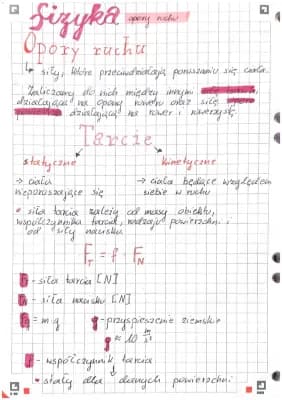 fizyka opory ruchu
Opory ruchu
↳ siły, które przeciwdziałają poruszaniu się ciała.
Zaliczamy do nich między innymi siłę tarcia,
działającą na opony roweru oraz siłę oporu
działającą na rower i rowerzystę.
Tarcie
statyczne kinetyczne
→ ciała → ciała będące względem
nieporuszające się siebie w ruchu
• siła tarcia zależy od masy obiektu,
współczynnika tarcia, rodzaju powierzchni i
od siły nacisku
F_T = f · F_N
- siła tarcia [N]
- siła nacisku [N]
= m·g g - przyspieszenie ziemskie
g ≈ 10 m/s²
f - współczynnik tarcia
↓
• stały dla danych powierzchni